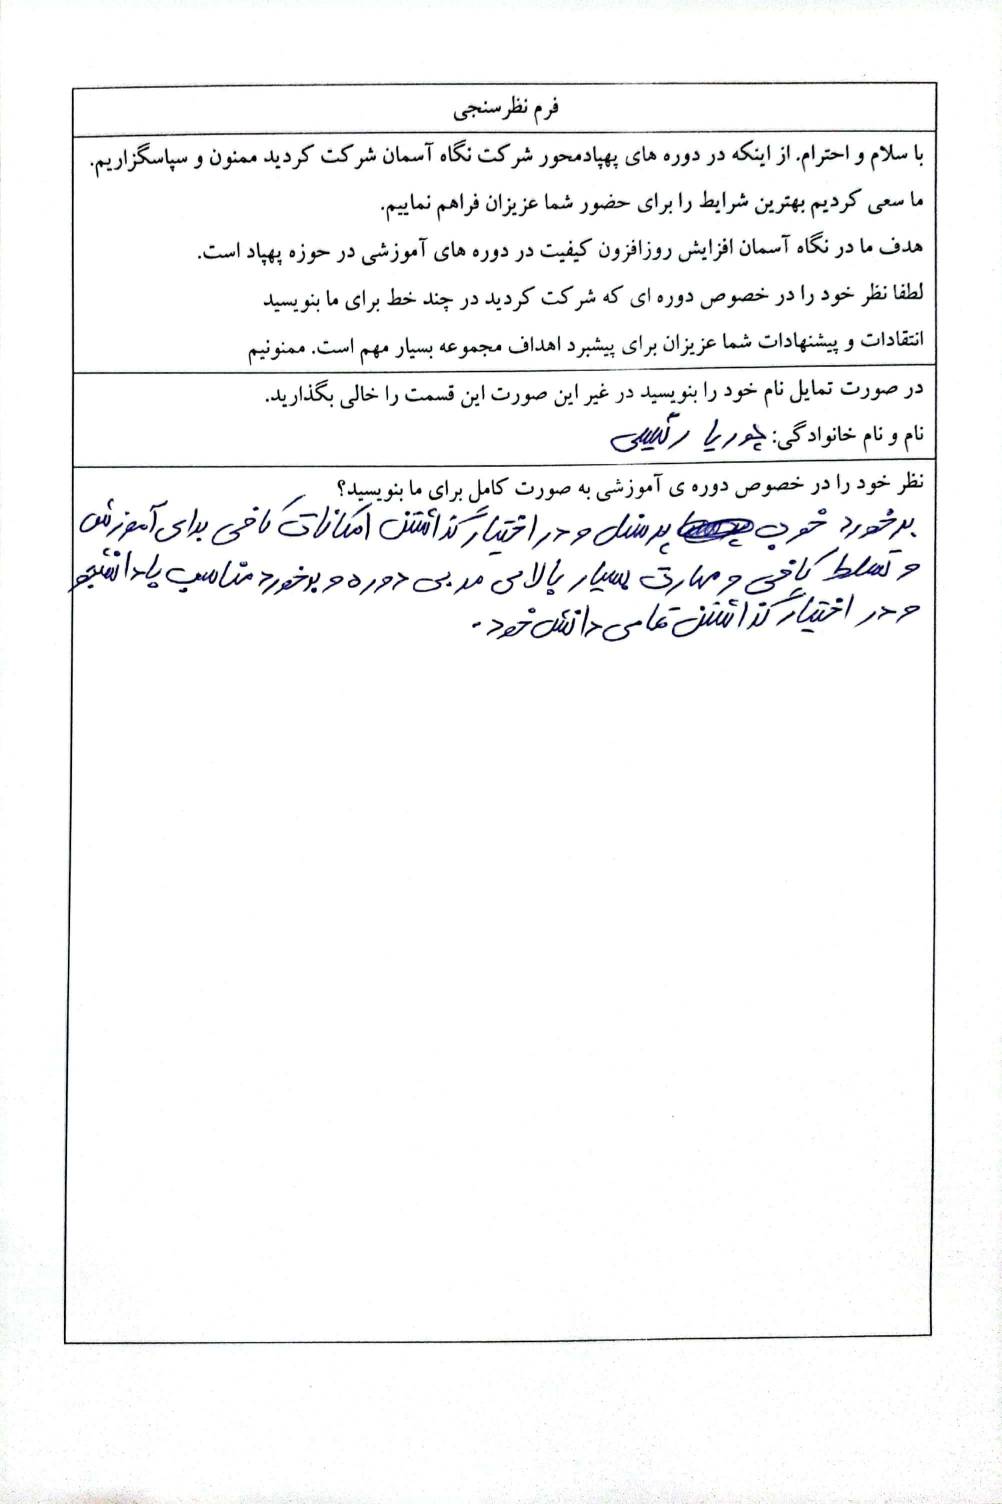 فرم نظرسنجی
با سلام و احترام. از اینکه در دوره های پهپادمحور شرکت نگاه آسمان شرکت کردید ممنون و سپاسگزاریم.
ما سعی کردیم بهترین شرایط را برای حضور شما عزیزان فراهم نماییم.
هدف ما در نگاه آسمان افزایش روزافزون کیفیت در دوره های آموزشی در حوزه پهپاد است.
لطفا نظر خود را در خصوص دوره ای که شرکت کردید در چند خط برای ما بنویسید
انتقادات و پیشنهادات شما عزیزان برای پیشبرد اهداف مجموعه بسیار مهم است. ممنونیم
در صورت تمایل نام خود را بنویسید در غیر این صورت این قسمت را خالی بگذارید.
نام و نام خانوادگی: پوریا رئیسی
نظر خود را در خصوص دوره ی آموزشی به صورت کامل برای ما بنویسید؟
برخورد خوب پرسنل و در اختیار گذاشتن امکانات کافی برای آموزش
و تسلط کافی و مهارت بسیار بالا می مربی دوره و برخورد مناسب با دانشجو
و در اختیار گذاشتن تمامی دانش خود.